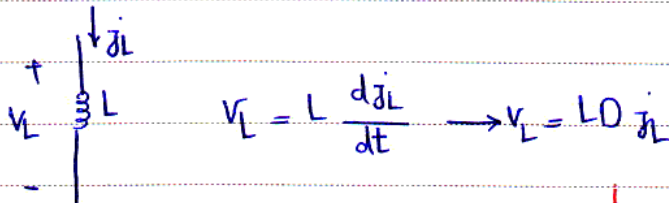 jL
+
VL
L
VL = L djL/dt → VL = LD jL
-